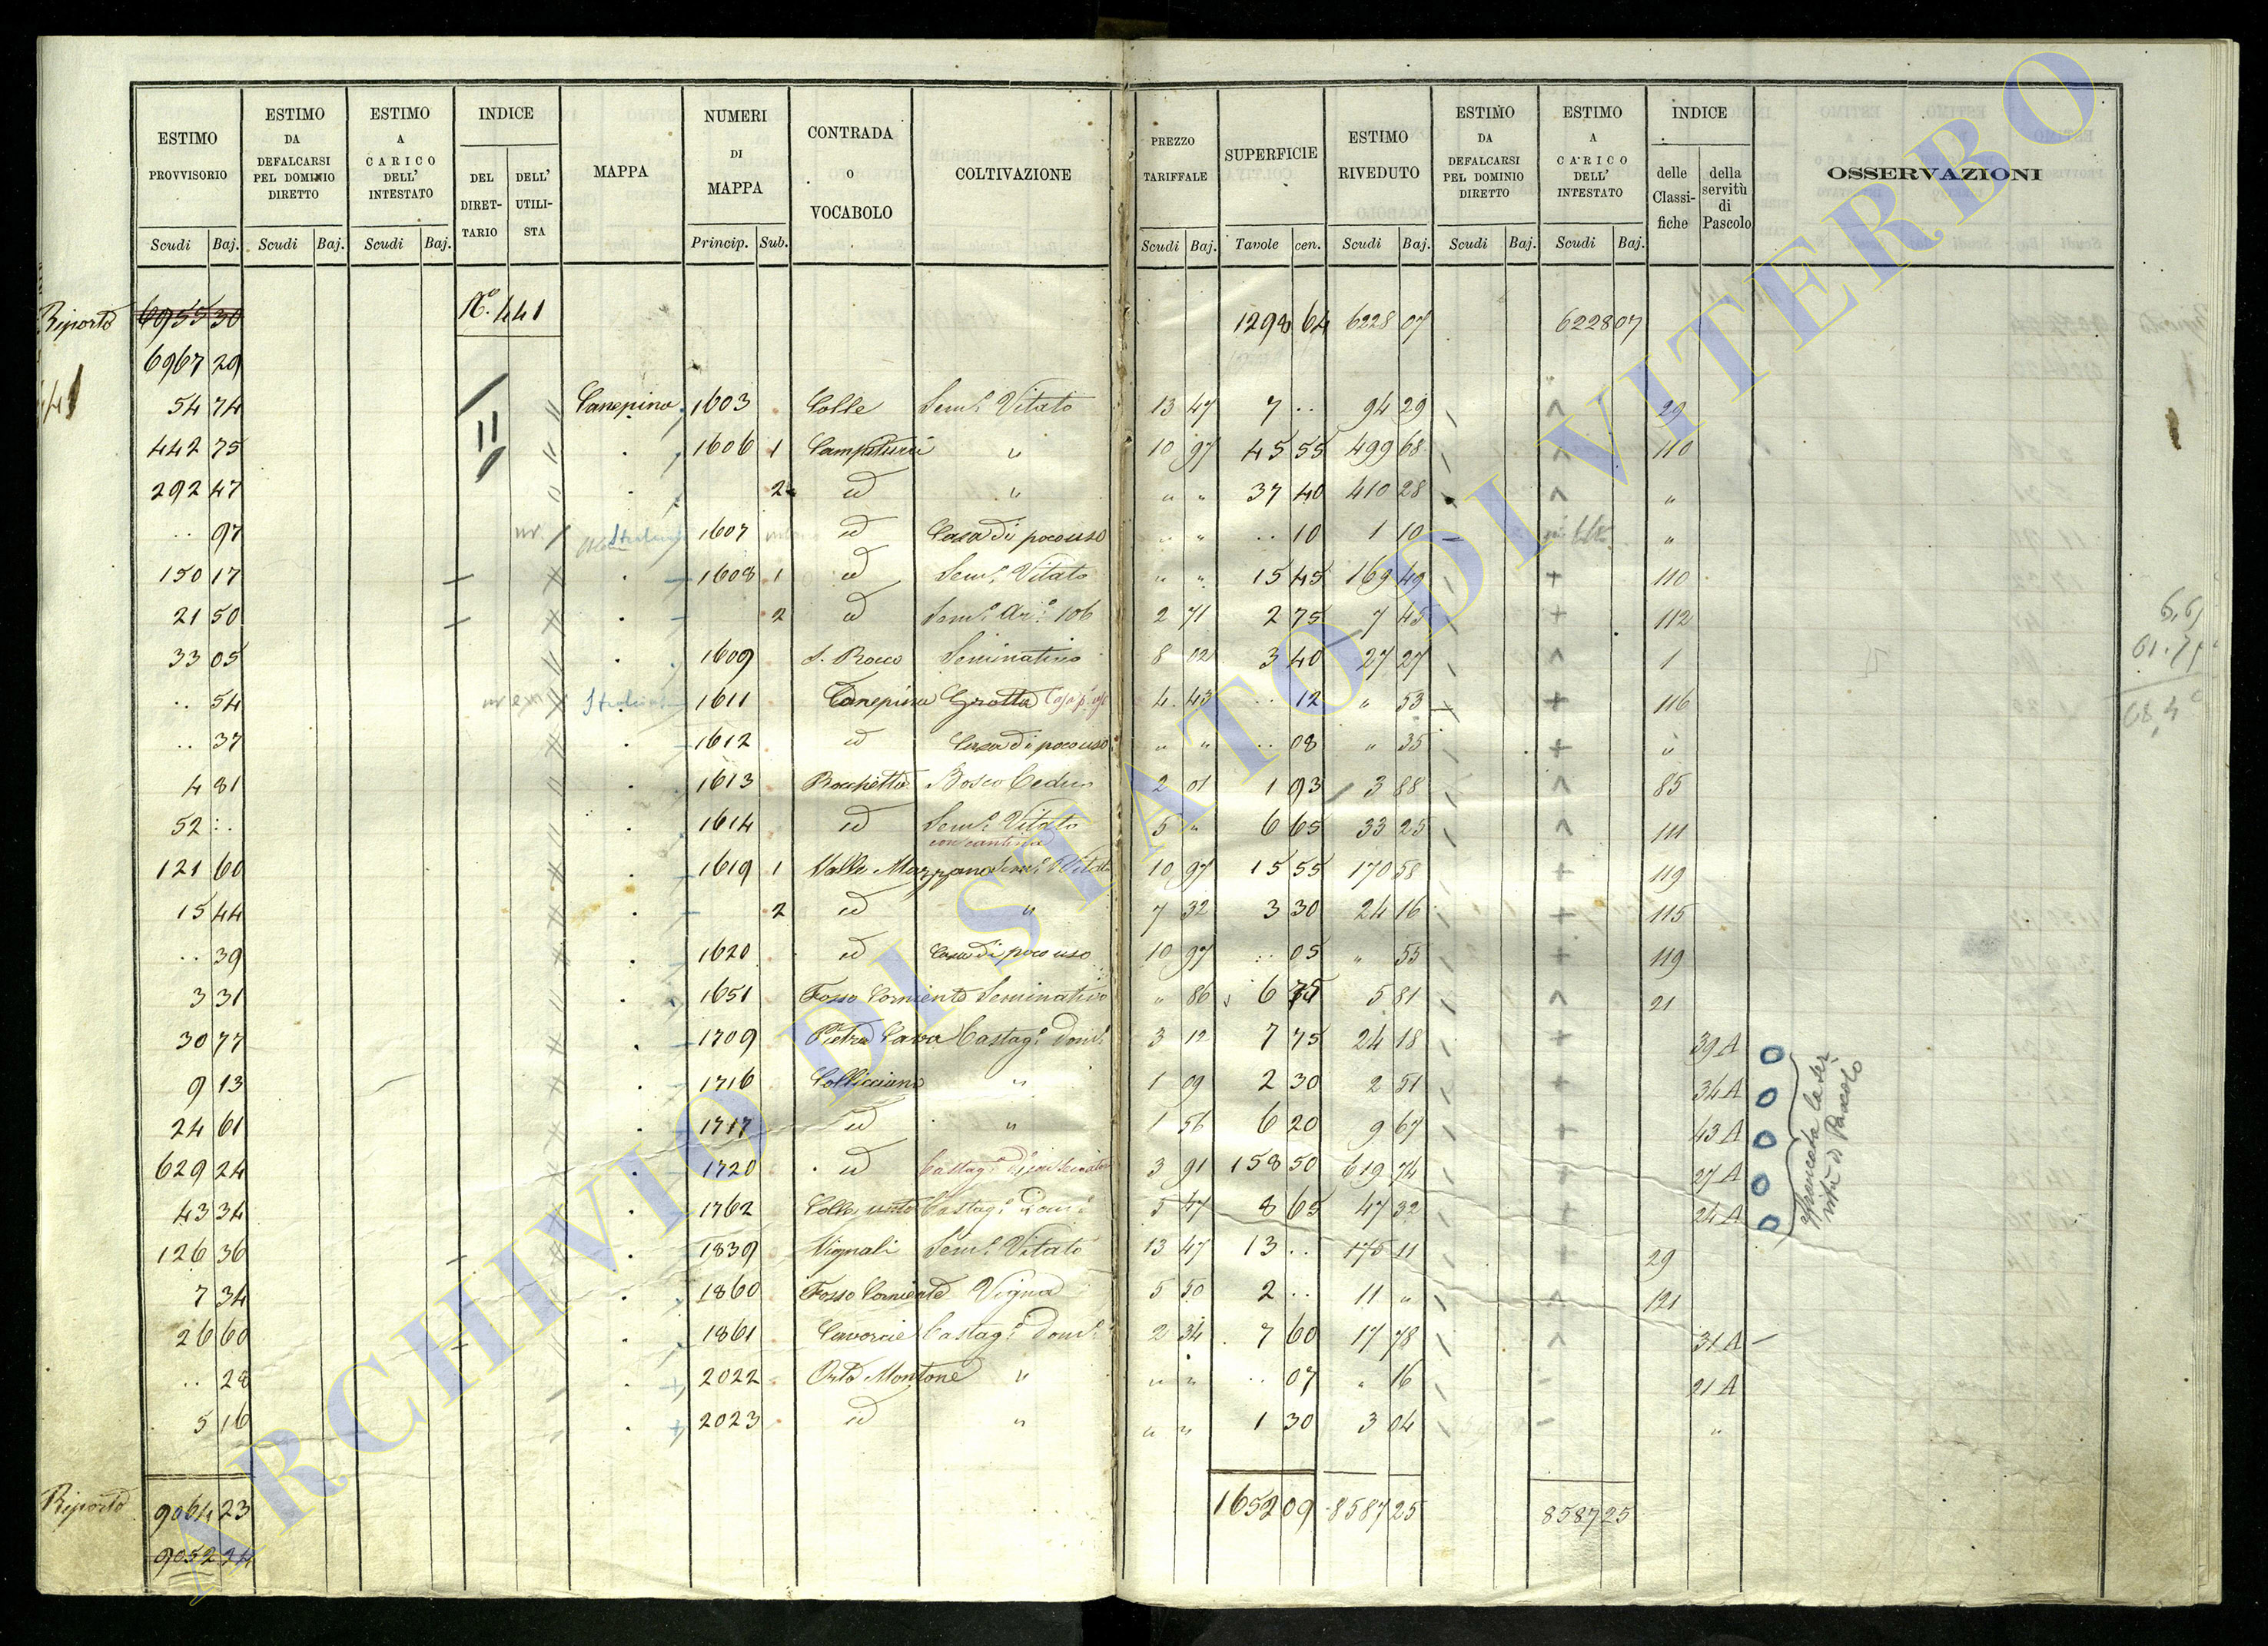 ESTIMO PROVVISORIO | ESTIMO DA DEFALCARSI PEL DOMINIO DIRETTO | ESTIMO A CARICO DELL' INTESTATO | INDICE | MAPPA | NUMERI DI MAPPA | CONTRADA O VOCABOLO | COLTIVAZIONE | PREZZO TARIFFALE | SUPERFICIE | ESTIMO RIVEDUTO | ESTIMO DA DEFALCARSI PEL DOMINIO DIRETTO | ESTIMO A CARICO DELL' INTESTATO | INDICE | OSSERVAZIONI
DEL DIRET-TARIO | DELL' UTILI-STA | delle Classi-fiche | della servitù di Pascolo
Scudi Baj. | Scudi Baj. | Scudi Baj. | Princip. Sub. | Scudi Baj. | Tavole cen. | Scudi Baj. | Scudi Baj. | Scudi Baj.
Riporto 6955 30 N.º 441 1298 64 6228 07 6228 07
6967 29
54 74 Canepina 1603 Colle Sem.º Vitato 13 47 7 .. 94 29 29
442 75 1606 1 " 10 97 45 55 499 68 110
292 47 2 id " " " 37 40 410 28 "
.. 97 1607 id Casa di poco uso " " .. 10 1 10 "
150 17 1608 1 id Sem.º Vitato " " 15 45 169 49 110
21 50 2 id Sem.º Ar.º 106 2 71 2 75 7 45 112
33 05 1609 S. Rocco Seminativo 8 02 3 40 27 27 1
.. 54 1611 Canepina Grotta 4 43 .. 12 " 53 116
.. 37 1612 id Casa di poco uso " " .. 08 " 35 "
4 81 1613 Rocchetta Bosco Ceduo 2 01 1 93 3 88 85
52 .. 1614 id Sem.º Vitato con cantina 5 " 6 65 33 25 111
121 60 1619 1 Valle Mazzano Sem.º Vitato 10 97 15 55 170 58 119
15 44 2 id " 7 32 3 30 24 16 115
.. 39 1620 id Casa di poco uso 10 97 .. 05 " 55 119
3 31 1651 Fosso Corniento Seminativo " 86 6 75 5 81 21
30 77 1709 Pietra Cava Castag.º Dom.º 3 12 7 75 24 18 39 A
9 13 1716 Colliciano " 1 09 2 30 2 51 34 A
24 61 1717 id " 1 56 6 20 9 67 43 A
629 24 1720 id Castag.º 3 91 158 50 619 74 27 A
43 34 1762 Castag.º Dom.º 5 47 8 65 47 32 24 A
126 36 1839 Vignali Sem.º Vitato 13 47 13 .. 175 11 29
7 34 1860 Fosso Corniente Vigna 5 50 2 .. 11 " 121
26 60 1861 Castag.º Dom.º 2 34 7 60 17 78 31 A
.. 28 2022 Orto Montone " " " .. 07 " 16 21 A
5 16 2023 id " " " 1 30 3 04 "
affrancata la ser
vitù di Pascolo
Riporto 9064 23 1652 09 8587 25 8587 25
9052 24
ARCHIVIO DI STATO DI VITERBO